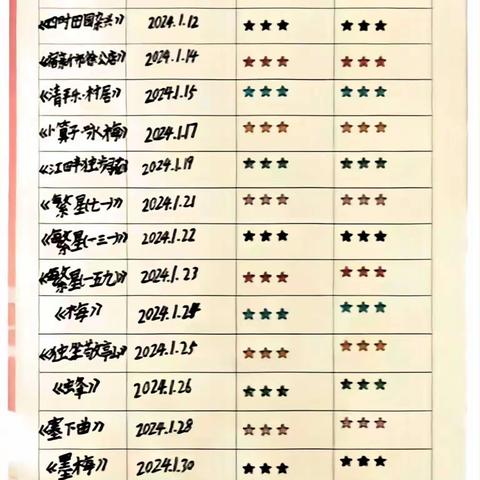 《四时田园杂兴》 2024.1.12 ★★★ ★★★
《宿新市徐公店》 2024.1.14 ★★★ ★★★
《清平乐·村居》 2024.1.15 ★★★ ★★★
《卜算子·咏梅》 2024.1.17 ★★★ ★★★
《江畔独步寻花》 2024.1.19 ★★★ ★★★
《繁星(七一)》 2024.1.21 ★★★ ★★★
《繁星(一三一)》 2024.1.22 ★★★ ★★★
《繁星(一五九)》 2024.1.23 ★★★ ★★★
《梅》 2024.1.24 ★★★ ★★★
《独坐敬亭山》 2024.1.25 ★★★ ★★★
《蜂》 2024.1.26 ★★★ ★★★
《塞下曲》 2024.1.28 ★★★ ★★★
《墨梅》 2024.1.30 ★★★ ★★★